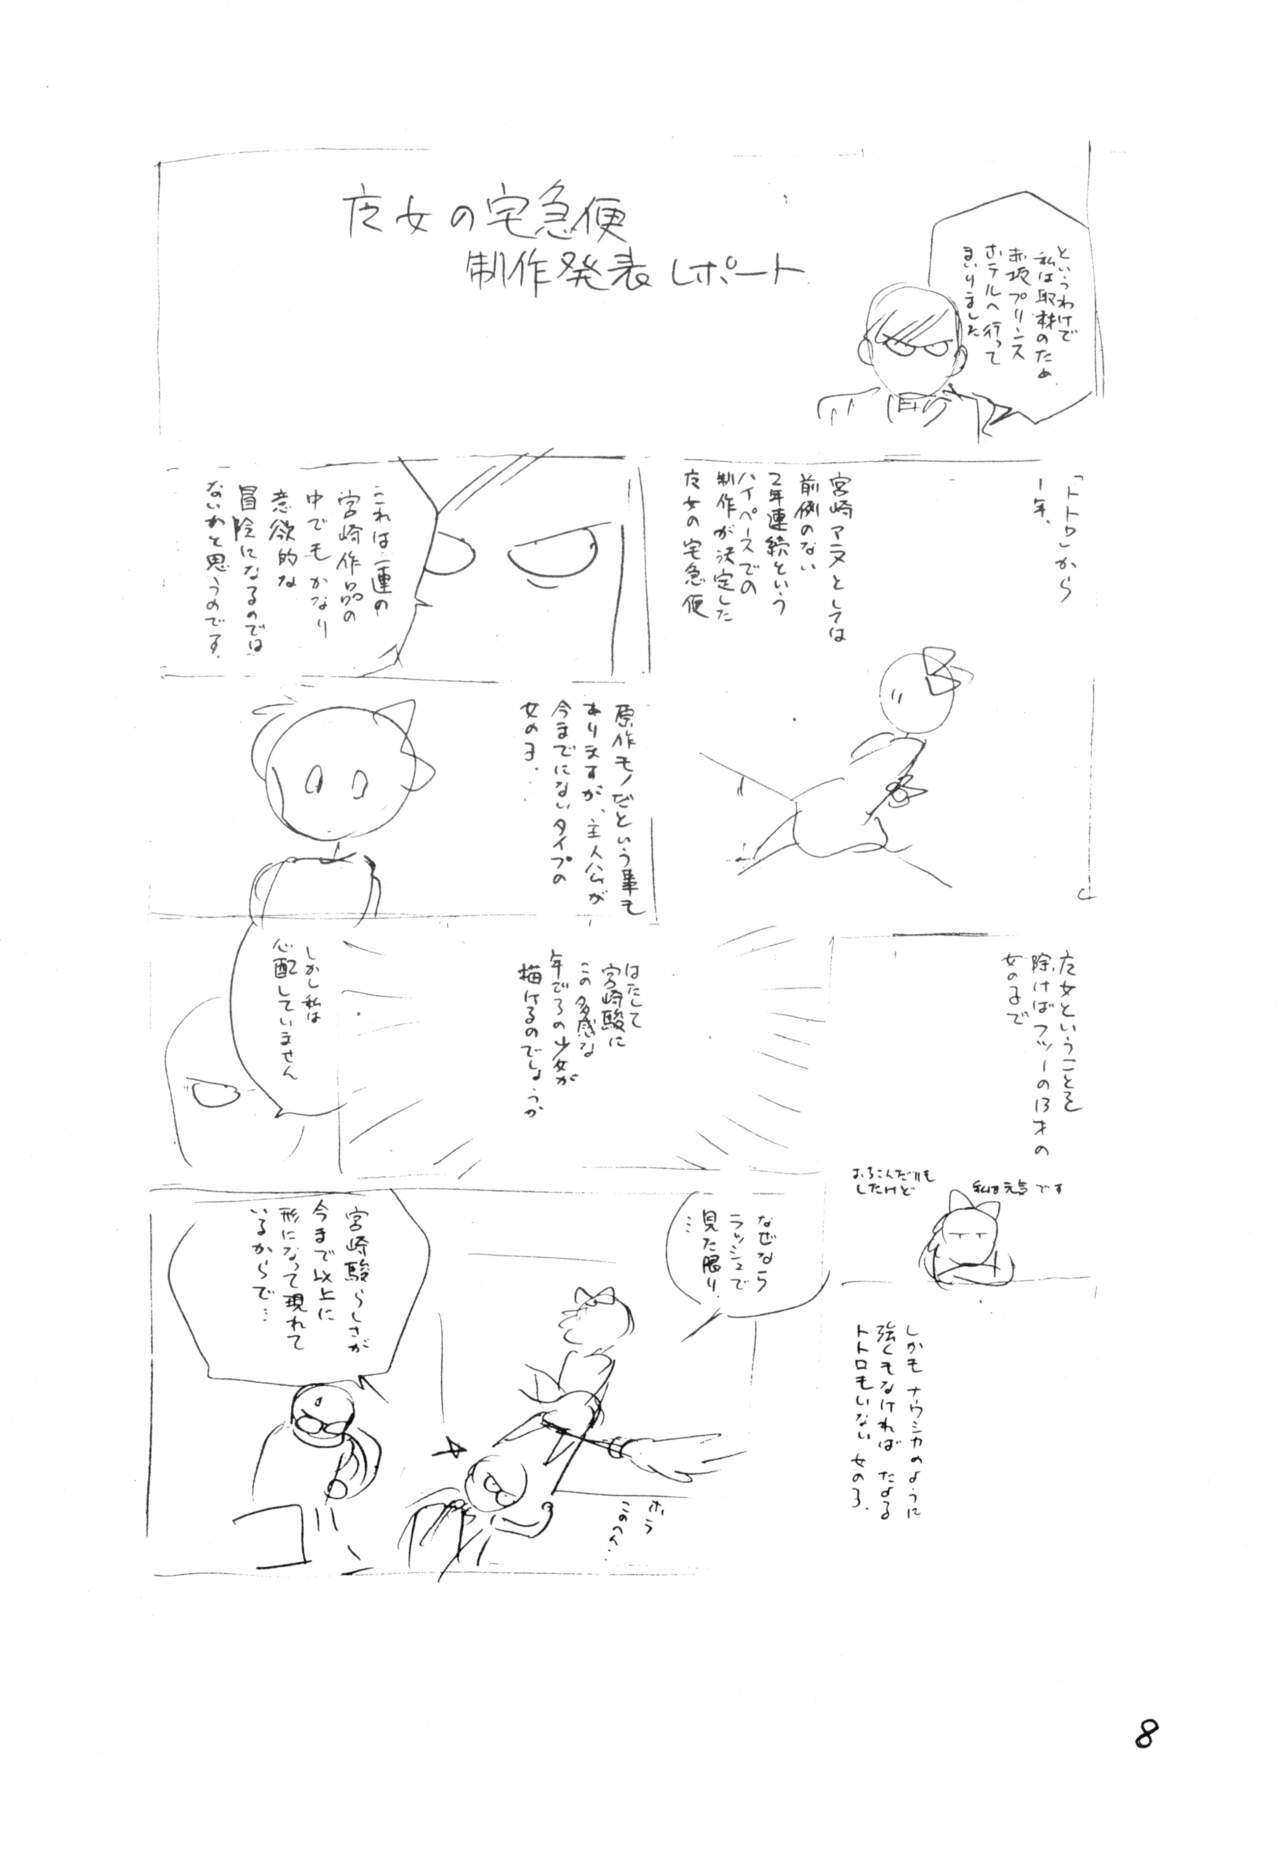 广女の宅急便
制作発表レポート
というわけで
私は取材のため
赤坂プリンス
ホテルへ行って
まいりました
「トトロ」から
1年、
宮崎アニメとしては
前例のない
2年連続という
ハイペースでの
制作が決定した
广女の宅急便
これは一連の
宮崎作品の
中でもかなり
意欲的な
冒険になるのでは
ないかと思うのです。
原作モノだという事も
ありますが、主人公が
今までにないタイプの
女の子.
广女ということを
除けばフツーの13才の
女の子で
おちこんだりも
したけど
私は元気です
しかもナウシカのように
強くもなければ たよる
トトロもいない 女の子.
はたして
宮崎駿に
この多感な
年ごろの少女が
描けるのでしょうか
しかし私は
心配していません
なぜなら
ラッシュで
見た限り
…
ホラ
このへん.
宮崎駿らしさが
今まで以上に
形になって現れて
いるからで…
8